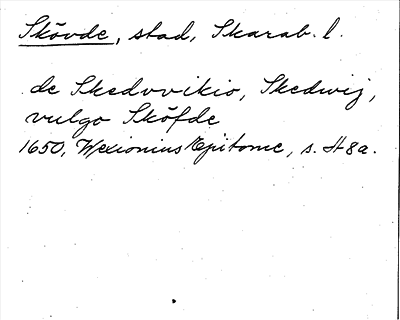 Skövde, stad, Skarab. l.
de Skedvvikio, Skedwij,
vulgo Sköfde
1650, Wexionius Epitome, s. H 8a.